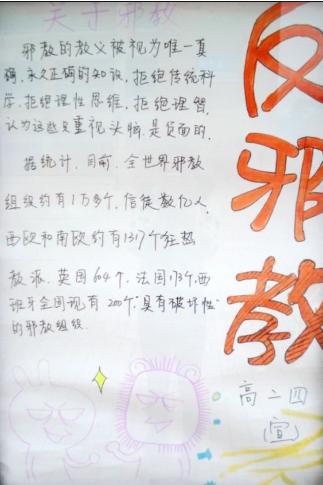 关于邪教
邪教的教义被视为唯一真
确、永久正确的知识,拒绝传统科
学、拒绝理性思维、拒绝理智,
认为这些只重视头脑,是负面的.
据统计,目前,全世界邪教
组织约有1万多个,信徒数亿人,
西欧和南欧约有1317个狂热
教派,英国604个,法国173个,西
班牙全国现有200个"具有破坏性"
的邪教组织.
反邪教
高二四
(宣)